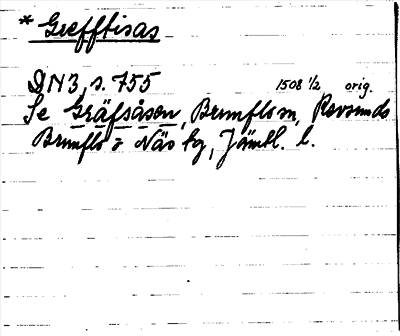 * Grefftisas
DN3, s. 755 1508 1/2 orig.
Se Gräfsåsen, Brunflo sn, Revsunds
Brunflo o Näs tg, Jämtl. l.